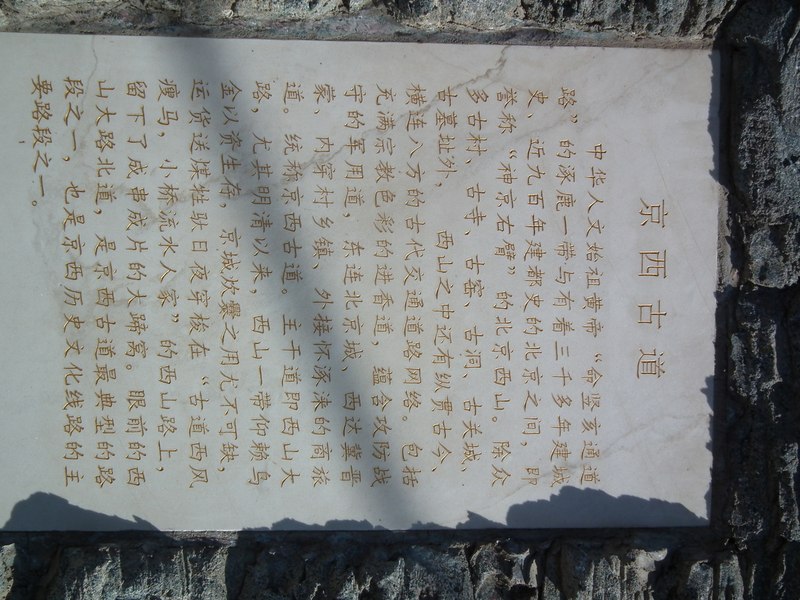 京西古道
中华人文始祖黄帝“命竖亥通道
路”的涿鹿一带与有着三千多年建城
史、近九百年建都史的北京之间，即
誉称“神京右臂”的北京西山。除众
多古村、古寺、古窑、古洞、古关城、
古墓址外，西山之中还有纵贯古今、
横连八方的古代交通道路网络。包括
充满宗教色彩的进香道，蕴含攻防战
守的军用道，东连北京城、西达冀晋
蒙，内穿村乡镇、外接怀涿涞的商旅
道。统称京西古道。主干道即西山大
路，尤其明清以来，西山一带仰赖乌
金以资生存，京城炊爨之用尤不可缺，
运货送煤牲驮日夜穿梭在“古道西风
瘦马，小桥流水人家”的西山路上，
留下了成串成片的大蹄窝。眼前的西
山大路北道，是京西古道最典型的路
段之一，也是京西历史文化线路的主
要路段之一。